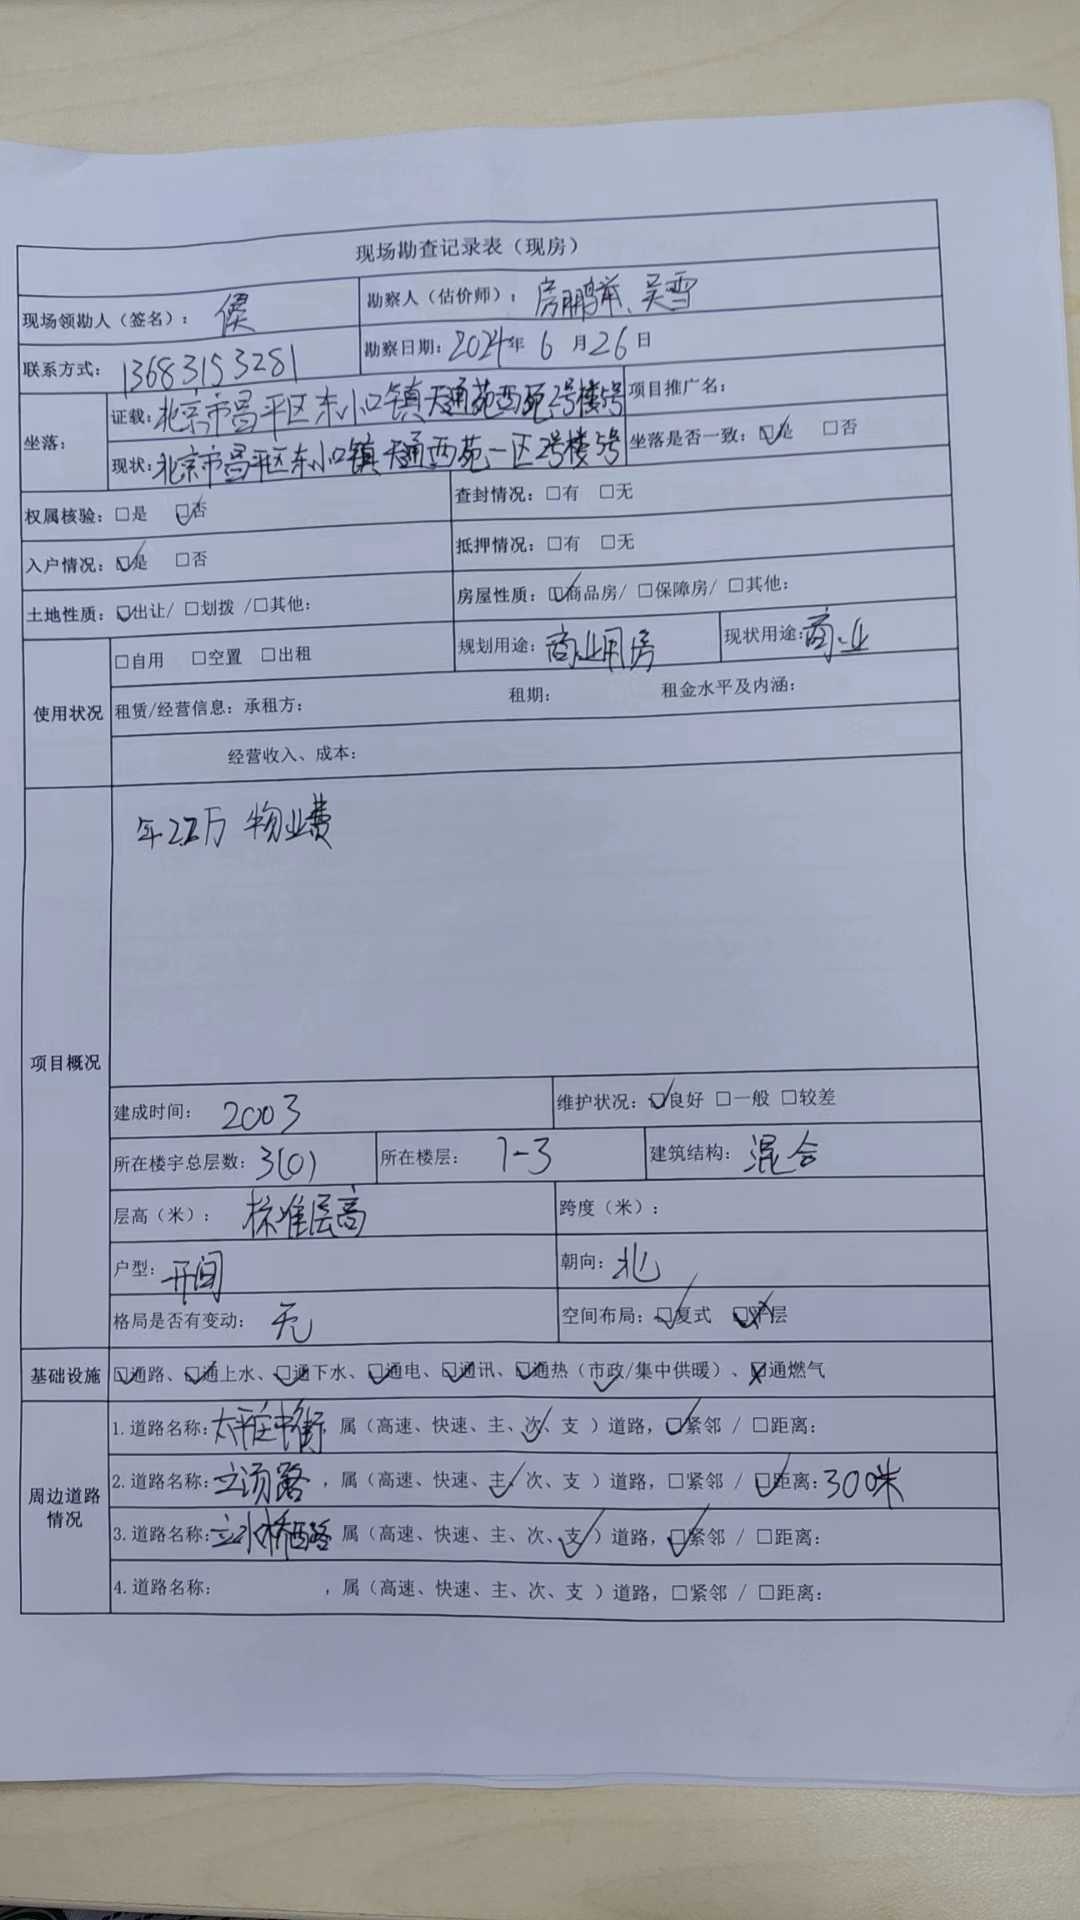 现场勘查记录表（现房）
现场领勘人（签名）： 侯 勘察人（估价师）： 房鹏 、吴雪
联系方式： 13683153281 勘察日期：2024年 6 月 26 日
坐落： 证载：北京市昌平区东小口镇天通苑西苑2号楼5号 项目推广名：
现状：北京市昌平区东小口镇天通西苑一区2号楼5号 坐落是否一致：☑是 □否
权属核验：□是 ☑否 查封情况：□有 □无
入户情况：☑是 □否 抵押情况：□有 □无
土地性质：☑出让/ □划拨 /□其他： 房屋性质：☑商品房/ □保障房/ □其他：
使用状况 □自用 □空置 □出租 规划用途：商业用房 现状用途：商业
租赁/经营信息：承租方： 租期： 租金水平及内涵：
经营收入、成本：
项目概况
年2.2万 物业费
建成时间： 2003 维护状况：☑良好 □一般 □较差
所在楼宇总层数：3(0) 所在楼层： 1-3 建筑结构： 混合
层高（米）： 标准层高 跨度（米）：
户型：开间 朝向：北
格局是否有变动： 无 空间布局：☑复式 ☒平层
基础设施 ☑通路、☑通上水、☑通下水、☑通电、☑通讯、☑通热（市政/集中供暖）、☒通燃气
周边道路情况 1.道路名称：太平庄中街，属（高速、快速、主、次、支 ）道路，☑紧邻 / □距离：
2.道路名称：立汤路 ，属（高速、快速、主、次、支 ）道路，□紧邻 / ☑距离：300米
3.道路名称：立水桥西路 属（高速、快速、主、次、支 ）道路，☑紧邻 / □距离：
4.道路名称： ，属（高速、快速、主、次、支 ）道路，□紧邻 / □距离：